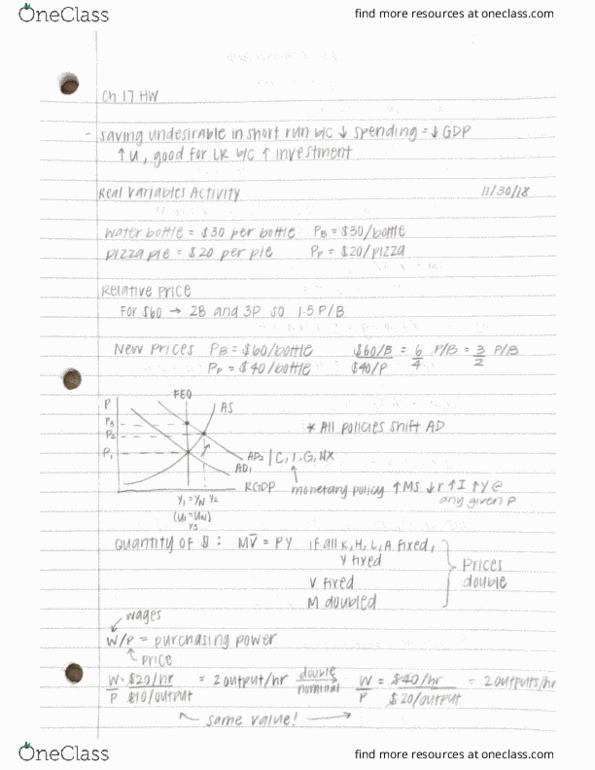 OneClass
find more resources at oneclass.com
Ch 17 HW
- saving undesirable in short run b/c ↓ spending = ↓ GDP
↑ U, good for LR b/c ↑ investment
Real Variables Activity 11/30/18
water bottle = $30 per bottle PB = $30/bottle
pizza pie = $20 per pie PP = $20/pizza
Relative Price
For $60 → 2B and 3P so 1.5 P/B
New Prices PB = $60/bottle $60/B = 6 P/B = 3 P/B
PP = $40/bottle $40/P 4 2
P FEO AS
P3
P2 * All policies shift AD
P1 AD2 | C, I, G, NX
AD1
RGDP monetary policy ↑MS ↓r ↑I ↑Y @
any given P
Y1 = YN Y2
(U1 = UN)
Y3
Quantity of $ : MV̅ = PY if all K, H, L, A fixed,
Y fixed
V fixed
M doubled
Prices
double
wages
W/P = purchasing power
price
W = $20/hr = 2 output/hr double W = $40/hr = 2 outputs/hr
P $10/output nominal P $20/output
same value!
OneClass
find more resources at oneclass.com